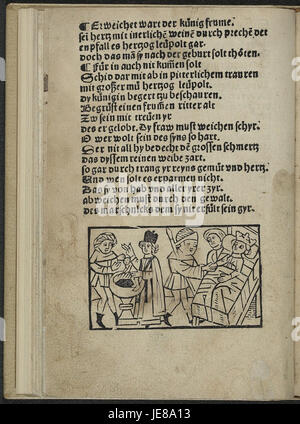 Erweichet wart der künig frume.
sei hertz mit inerlichē weinē durch prechē det
enpfall es hertzog leüpolt gar.
doch das mā sy nach der geburt solt thötē.
Für in auch nit kumē solt
Schid dar mit ab in pitterlichem trauren
mit großer mü hertzog leüpolt.
dy künigin begert zu beschauren.
Begrüst einen frumē ritter alt
Zw sein mit treüen yr
des er gelobt. Dy fraw must weichen schyr.
O wer wolt sein des syns so hart.
Ser nit all hy bedecht dē grossen schmertz
das dyssem reinen weibe zart.
so gar durch trang yr reyns gemüt vnd hertz.
Vnd wen solt es erparmen nicht.
Das sy von hab vnd aller yrer zyr.
ab weichen must durch den gewalt.
des marschalcks dem sy nit erfült sein gyr.
alamy
alamy
JE8A13